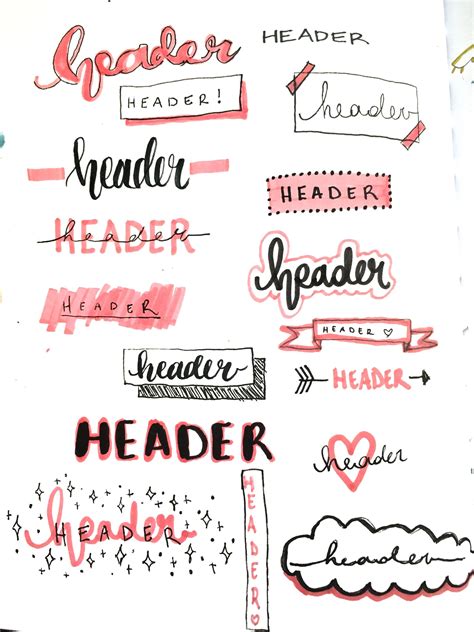 header
HEADER
HEADER!
header
header
HEADER
HEADER
header
header
HEADER
HEADER ♡
header
HEADER
HEADER
header
header
HEADER
HEADER♡
header